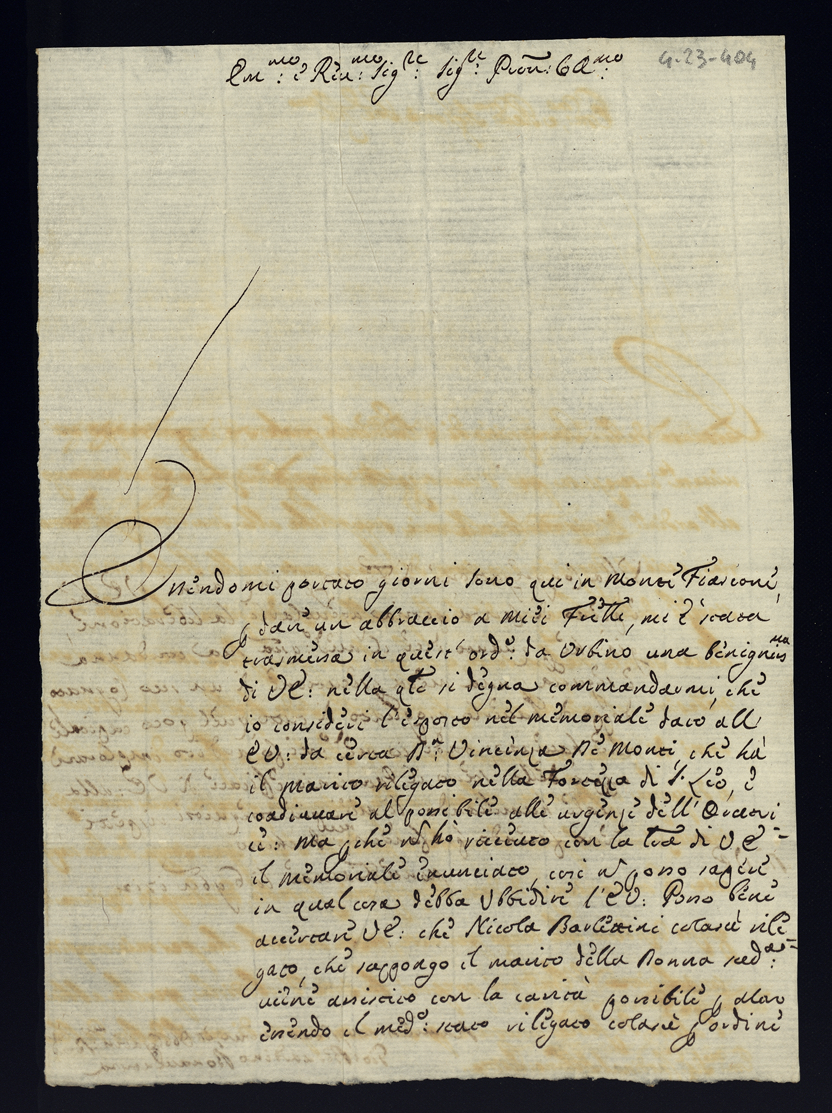 4-23-404
Em.mo e Rev.mo Sig.re Sig.re Prōn: Col.mo
Essendomi portato giorni sono qui in Monte Fiascone,
p dare un abbraccio a miei Frēlli, mi è stata
trasmessa in quest' ord.o da Urbino una benigniss.ma
di VE: nella qle si degna commandarmi, che
io consideri l'esposto nel memoriale dato all
EV: da certa D.a Vincenza De Monti, che hà
il marito rilegato nella Fortezza di S. Leo, e
coadiuvare al possibile alle urgenze dell' Oratri
ce: Ma pche nō hò ricevuto con la lrā di VE
il memoriale enunciato, così nō posso sapere
in qual cosa debba Ubbidire l'EV: Posso bene
accertare VE: che Nicola Bartolini colassù rile
gato, che suppongo il marito della Donna sud.a:
viene assistito con la carità possibile, p altro
essendo il med.o: stato rilegato colassù p ordine